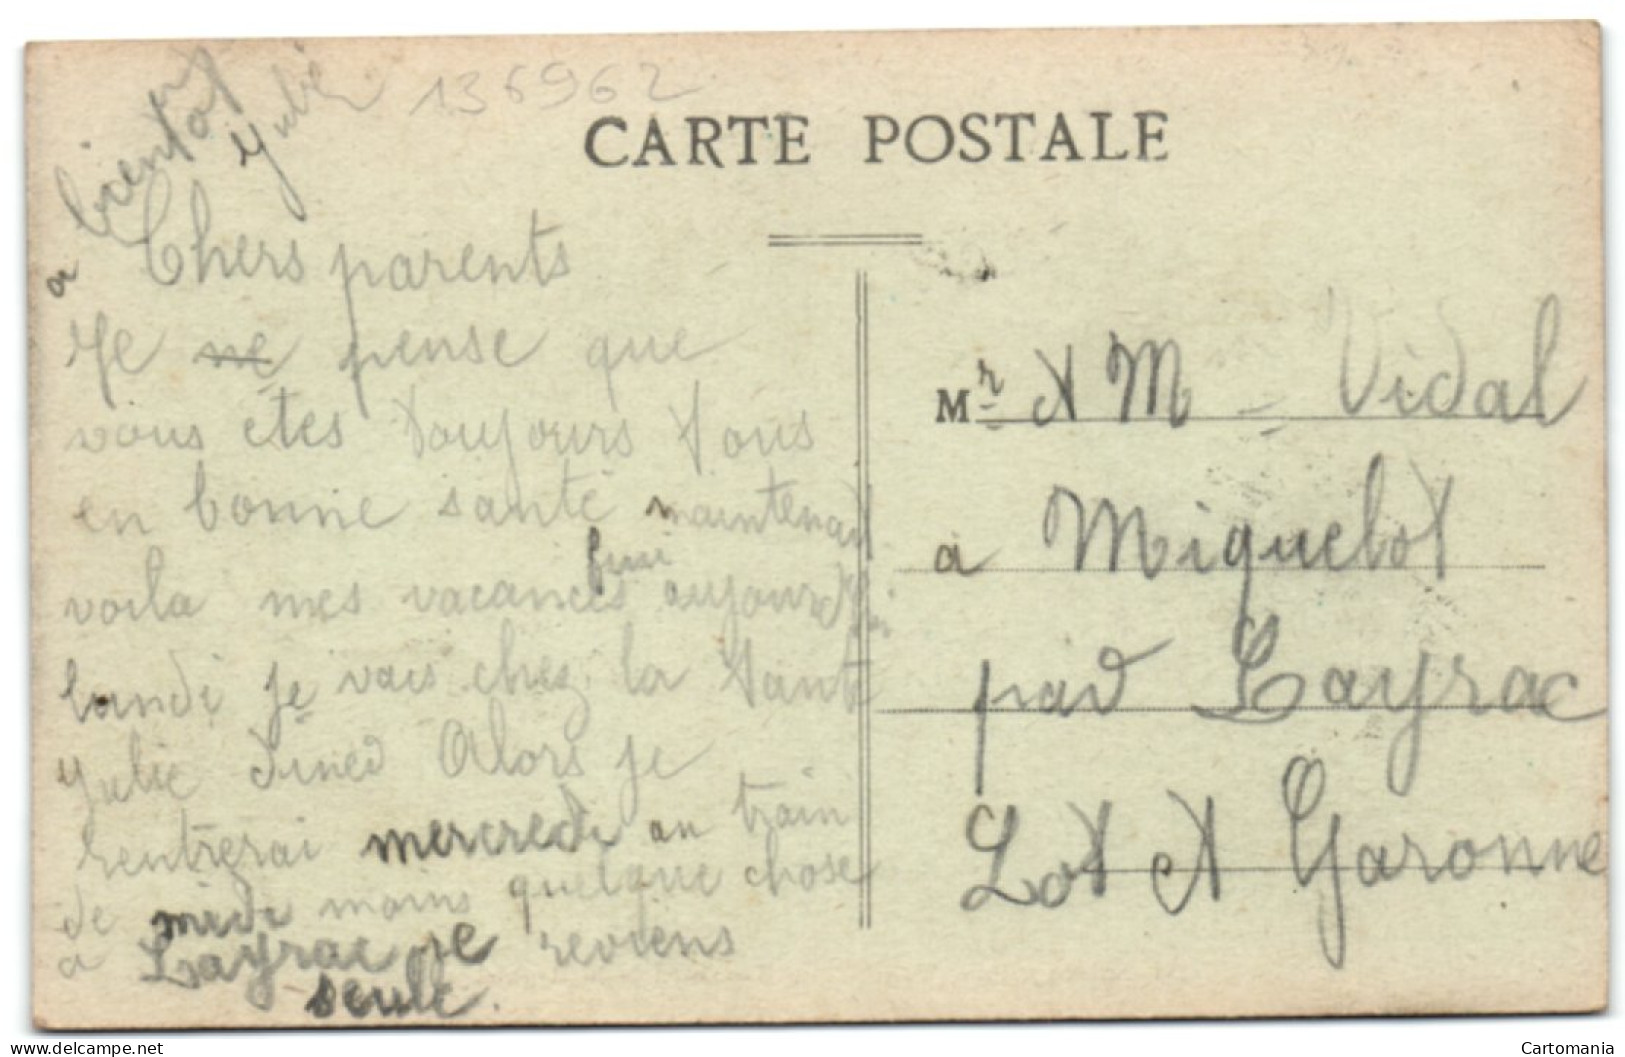 136962
CARTE POSTALE
a bientot
Julie
Chers parents
Je ne pense que
vous etes toujours tous
en bonne santé maintenant
voila mes vacances fini aujourd'hui
lundi je vais chez la tante
Julie diner Alors je
rentrerai mercredi au train
de midi moins quelque chose
a Layrac je reviens
seule.
Mr et M - Vidal
a Miquelot
par Layrac
Lot et Garonne
delcampe.net
Cartomania